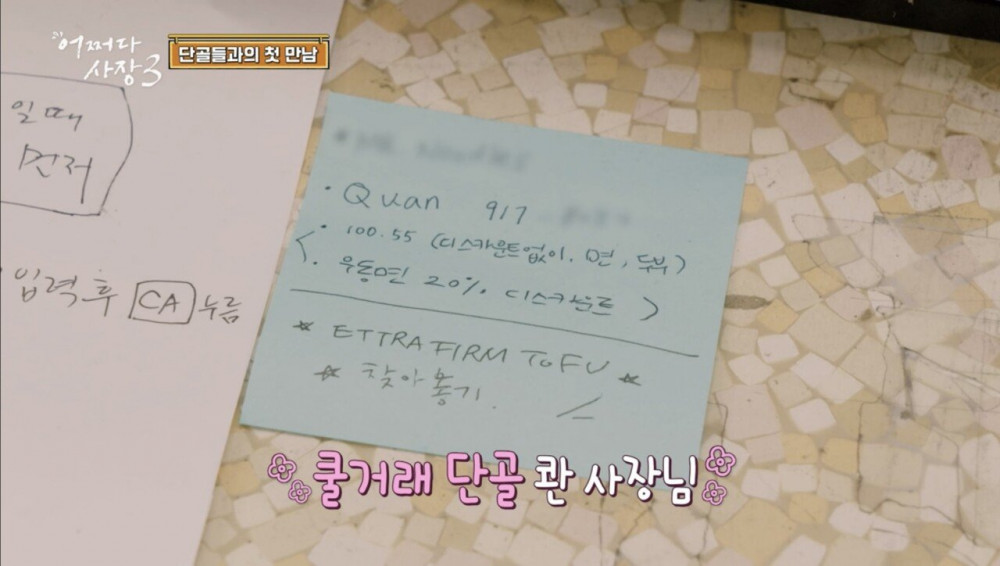 어쩌다
사장3
단골들과의 첫 만남
일때
먼저
입력후 CA 누름
• Quan 917
• 100.55 (디스카운트없이. 면, 두부)
• 우동면 20% 디스카운트
★ ETTRA FIRM TOFU ★
★ 찾아놓기.
쿨거래 단골 콴 사장님